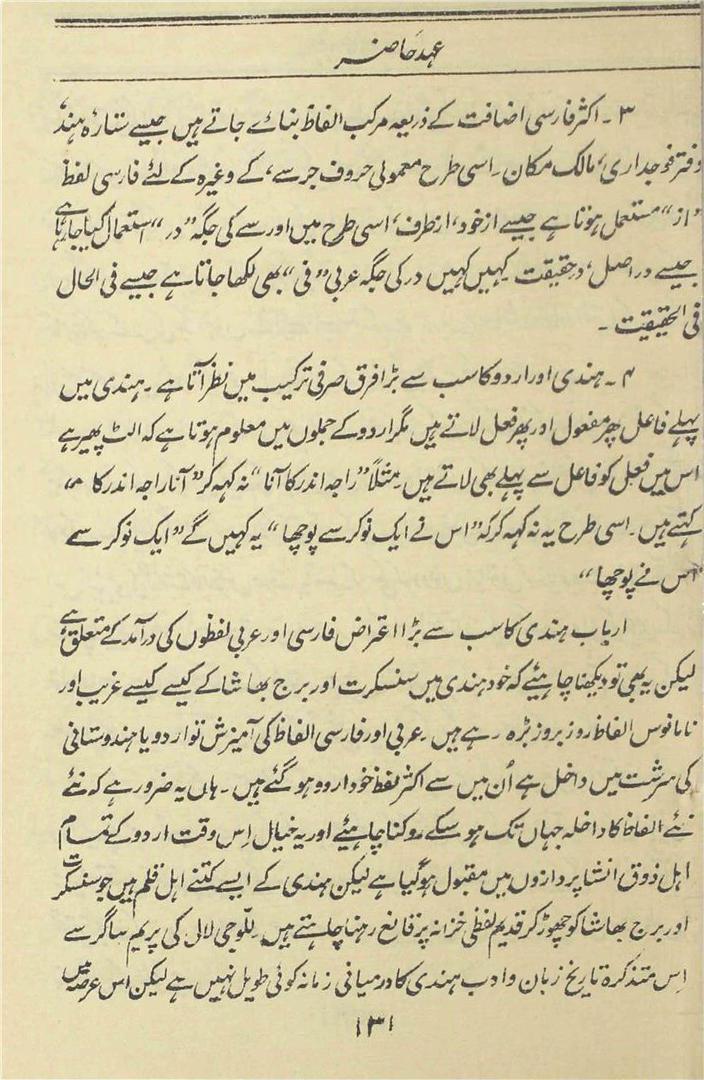 عہد حاضر
۳ ۔ اکثر فارسی اضافت کے ذریعہ مرکب الفاظ بنائے جاتے ہیں جیسے ستارۂ ہند،
دفتر فوجداری، مالک مکان ۔ اسی طرح معمولی حروف جر سے، کے وغیرہ کے لئے فارسی لفظ
”از“ مستعمل ہوتا ہے جیسے از خود، از طرف، اسی طرح میں اور سے کی جگہ ”در“ استعمال کیا جاتا ہے
جیسے در اصل، در حقیقت کہیں کہیں در کی جگہ عربی ”فی“ بھی لکھا جاتا ہے جیسے فی الحال
فی الحقیقت ۔
۴ ۔ ہندی اور اردو کا سب سے بڑا فرق صرفی ترکیب میں نظر آتا ہے ۔ ہندی میں
پہلے فاعل پھر مفعول اور پھر فعل لاتے ہیں مگر اردو کے جملوں میں معلوم ہوتا ہے کہ الٹ پھیر ہے
اس میں فعل کو فاعل سے پہلے بھی لاتے ہیں ۔ مثلاً ”راجہ اندر کا آنا“ نہ کہہ کر ”آنا راجہ اندر کا“
کہتے ہیں ۔ اسی طرح یہ نہ کہہ کر کہ ”اس نے ایک نوکر سے پوچھا“ یہ کہیں گے ”ایک نوکر سے
اس نے پوچھا“
ارباب ہندی کا سب سے بڑا اعتراض فارسی اور عربی لفظوں کی درآمد کے متعلق ہے
لیکن یہ بھی تو دیکھنا چاہیئے کہ خود ہندی میں سنسکرت اور برج بھاشا کے کیسے کیسے غریب اور
نامانوس الفاظ روز بروز بڑھ رہے ہیں ۔ عربی اور فارسی الفاظ کی آمیزش تو اردو یا ہندوستانی
کی سرشت میں داخل ہے اُن میں سے اکثر لفظ خود اردو ہو گئے ہیں ۔ ہاں یہ ضرور ہے کہ نئے
نئے الفاظ کا داخلہ جہاں تک ہو سکے روکنا چاہیئے اور یہ خیال اِس وقت اردو کے تمام
اہل ذوق انشا پردازوں میں مقبول ہو گیا ہے لیکن ہندی کے ایسے کتنے اہل قلم ہیں جو سنسکرت
اور برج بھاشا کو چھوڑ کر قدیم لفظی خزانہ پر قانع رہنا چاہتے ہیں ۔ للّوجی لال کی پریم ساگر سے
اِس متذکرہ تاریخ زبان و ادب ہندی کا درمیانی زمانہ کوئی طویل نہیں ہے لیکن اس عرصہ میں
۱۳۱